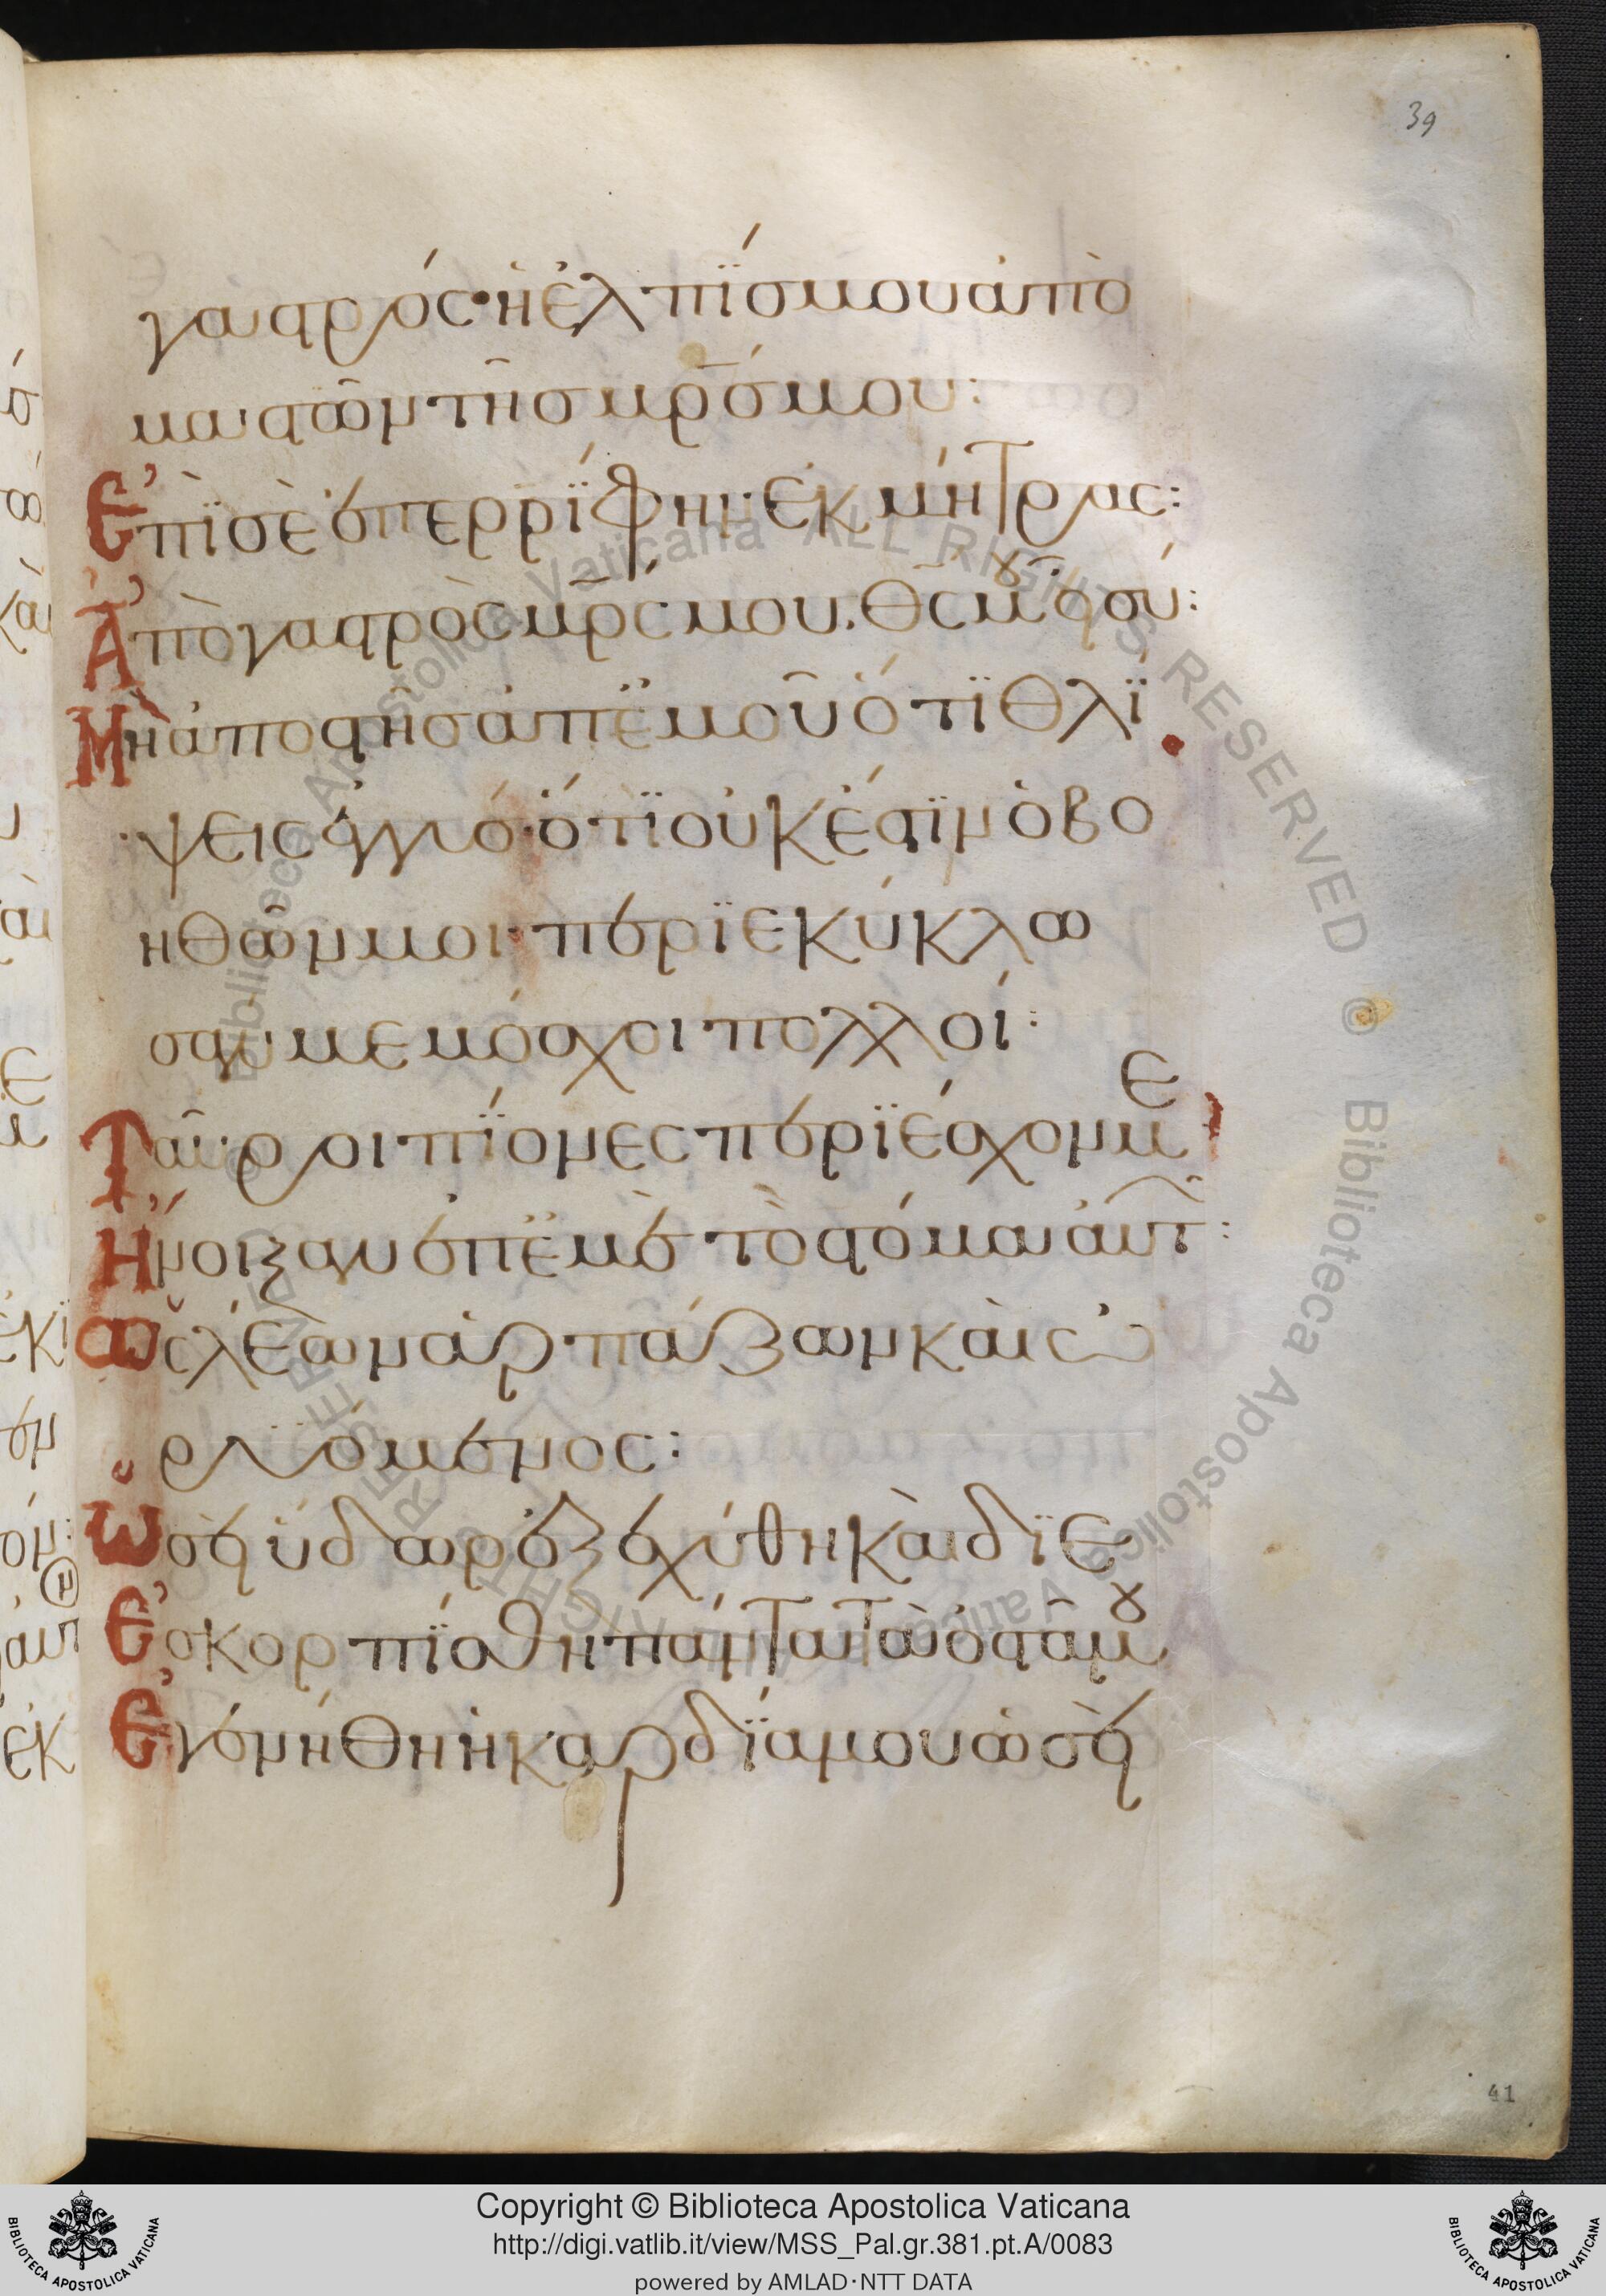 39
γαστρός· ἡ ἐλπίσ μου ἀπὸ
μαστῶν τῆσ μρ̅σ μου:
Ἐπῒ σὲ ἐπερρίφην ἐκ μήτρας:
Ἀπὸ γαστρὸς μρ̅ς μου. Θς̅ μου εἶ σύ:
Μὴ ἀποστῆσ ἀπ' ἐμοῦ ὅτϊ θλί
ψεις ἐγγύσ· ὅτϊ οὐκ ἔστϊν ὁ βο
ηθῶν μοι· περϊεκύκλω
σαν με μόσχοι πολλοί:
Ταῦροι πίονες περϊέσχον με
Ἤνοιξαν ἐπ' ἐμὲ τὸ στόμα αὐτ:
Ὡς λέων ἁρπάζων καὶ ὠ
ρυόμενος:
Ὡσεὶ ὕδωρ ἐξεχύθην καὶ δϊε
Ἐσκορπίσθη πάντα τὰ ὀστᾶ μου
Ἐγενήθη ἡ καρδία μου ὡσεὶ
41
Biblioteca Apostolica Vaticana ALL RIGHTS RESERVED ©
Copyright © Biblioteca Apostolica Vaticana
http://digi.vatlib.it/view/MSS_Pal.gr.381.pt.A/0083
powered by AMLAD·NTT DATA
BIBLIOTECA APOSTOLICA VATICANA
BIBLIOTECA APOSTOLICA VATICANA